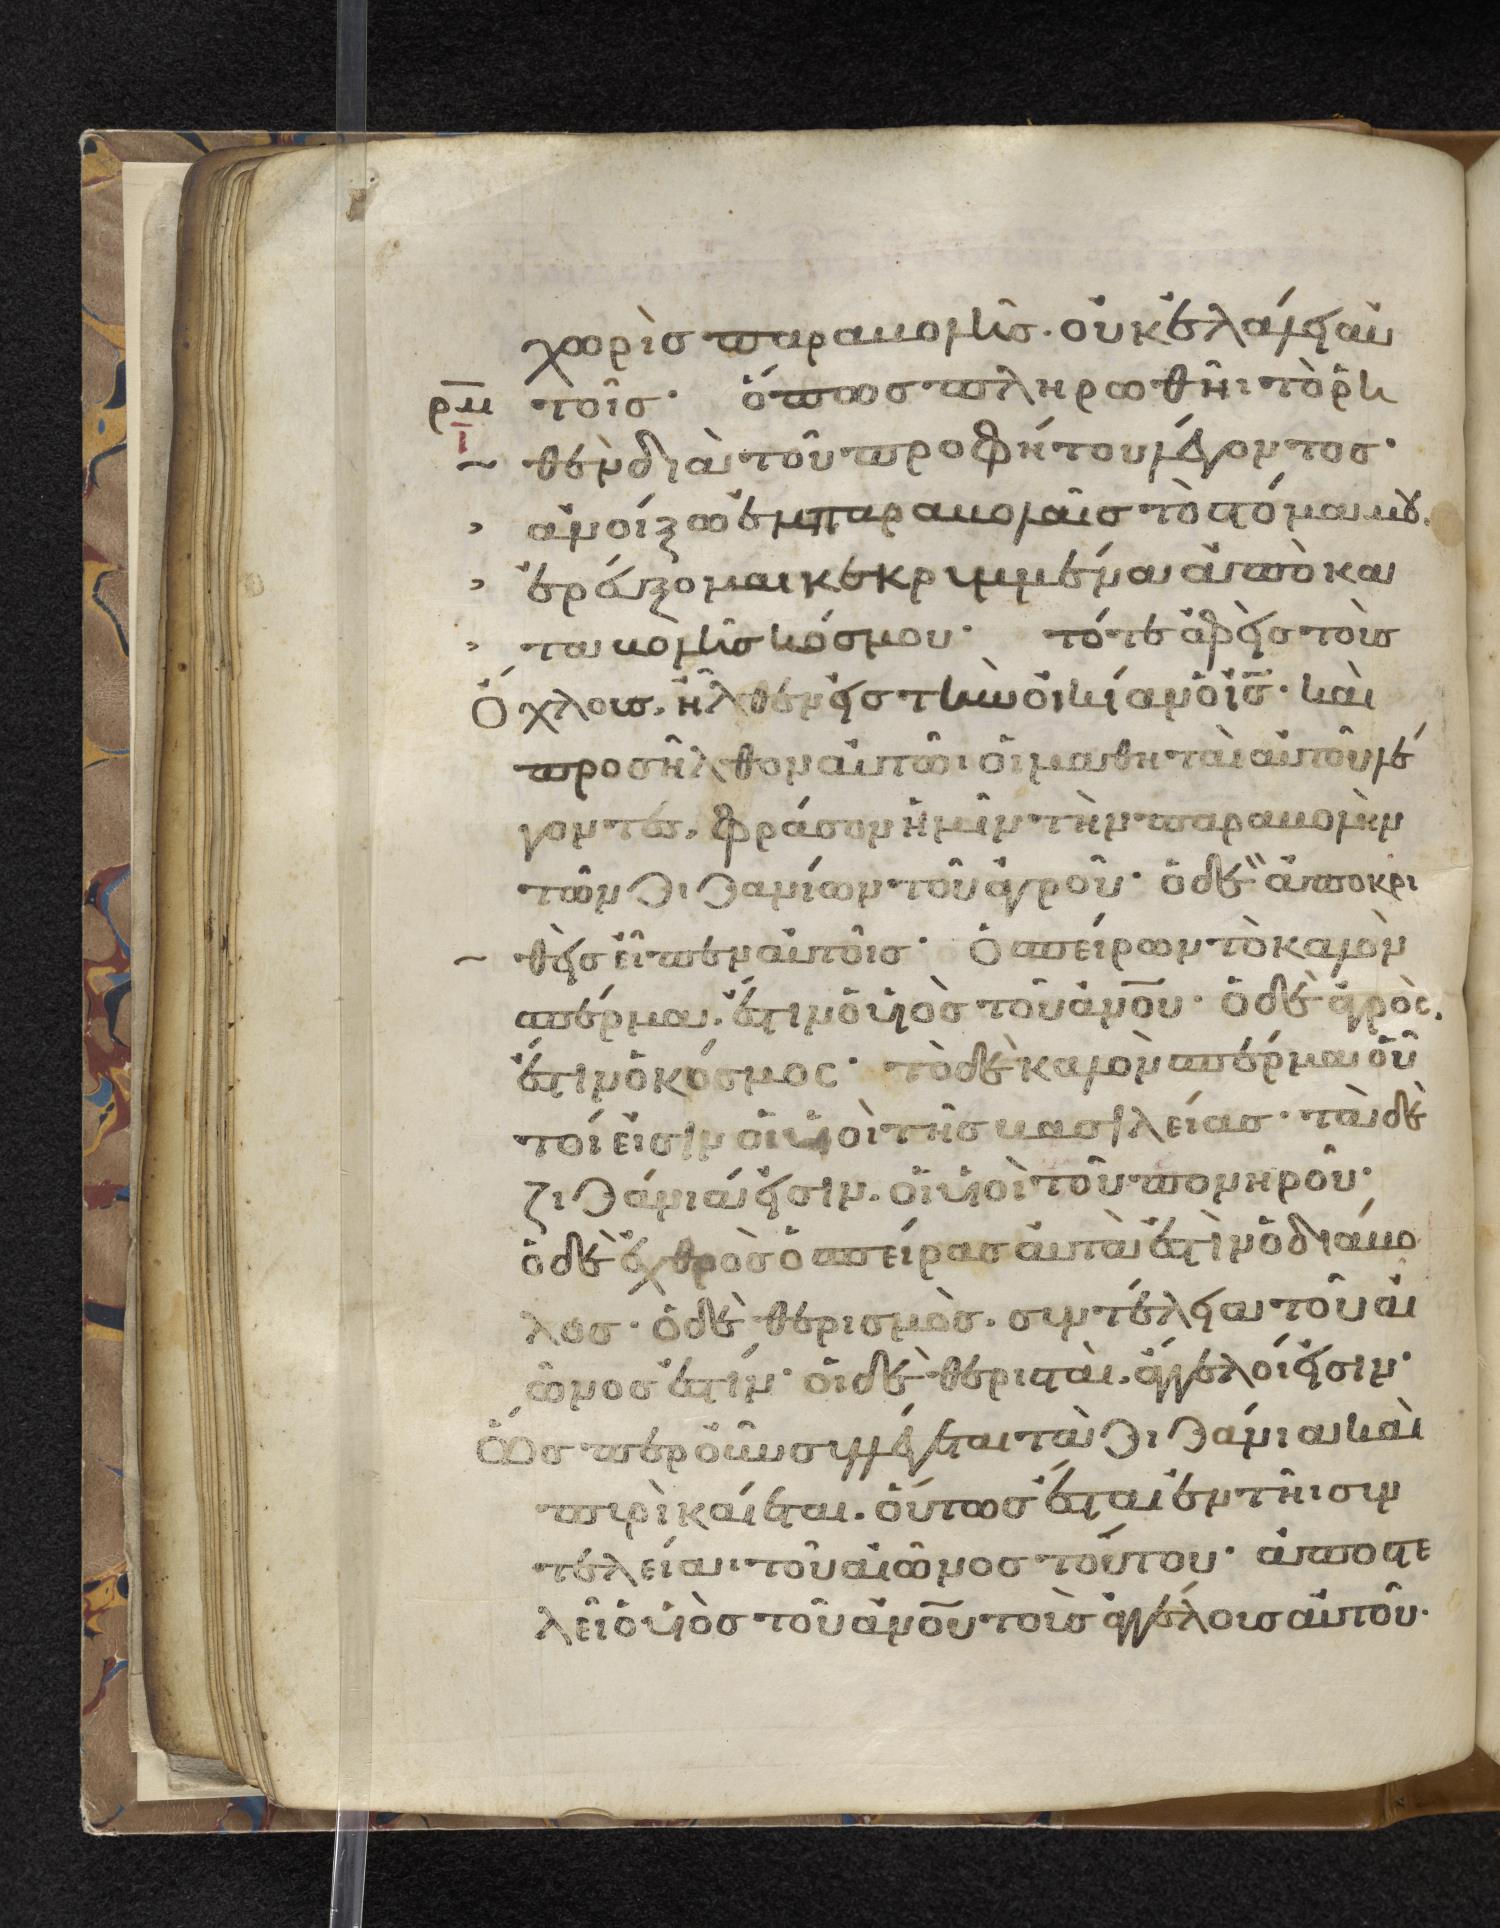 χωρὶς παραβολῆς· οὐκ ἐλάλει αὐ
ρμ τοῖς· ὅπως πληρωθῆι τὸ ῥη
ι
~ θὲν διὰ τοῦ προφήτου λέγοντος·
> ἀνοίξω ἐν παραβολαῖς τὸ στόμα μου.
> ἐρεύξομαι κεκρυμμένα ἀπὸ κα
> ταβολῆς κόσμου· τότε ἀφεὶς τοὺς
ὄχλους, ἦλθεν εἰς τὴν οἰκίαν ὁ ις̅· καὶ
προσῆλθον αὐτῶι οἱ μαθηταὶ αὐτοῦ λέ
γοντες, φράσον ἡμῖν τὴν παραβολὴν
τῶν ζιζανίων τοῦ ἀγροῦ· ὁ δὲ ἀποκρι
~ θεὶς εἶπεν αὐτοῖς· Ὁ σπείρων τὸ καλὸν
σπέρμα. ἐστιν ὁ υἱὸς τοῦ ἀνο̅υ̅· ὁ δὲ ἀγρὸς.
ἐστιν ὁ κόσμος· τὸ δὲ καλὸν σπέρμα οὗ
τοί εἰσιν οἱ υἱοὶ τῆς βασιλείας· τὰ δὲ
ζιζάνια εἰσιν. οἱ υἱοὶ τοῦ πονηροῦ·
ὁ δὲ ἐχθρὸς ὁ σπείρας αὐτὰ ἐστὶν ὁ διάβο
λος· ὁ δὲ θερισμὸς. συντέλεια τοῦ αἰ
ῶνος ἐστίν· οἱ δὲ θερισταὶ. ἄγγελοί εἰσιν·
Ὥσπερ οὖν συλλέγεται τὰ ζιζάνια καὶ
πυρὶ καίεται. οὕτως ἔσται ἐν τῆι συν
τελείαι τοῦ αἰῶνος τούτου· ἀποστε
λεῖ ὁ υἱὸς τοῦ ἀνο̅υ̅ τοὺς ἀγγέλους αὐτοῦ·